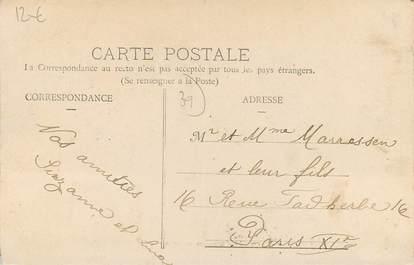 12-€
CARTE POSTALE
La Correspondance au recto n'est pas acceptée par tous les pays étrangers.
(Se renseigner à la Poste)
CORRESPONDANCE
39
ADRESSE
Vos amitiés
Suzanne et
Mr et Mme Maraessen
et leur fils
16 Rue Faidherbe 16
Paris XIe